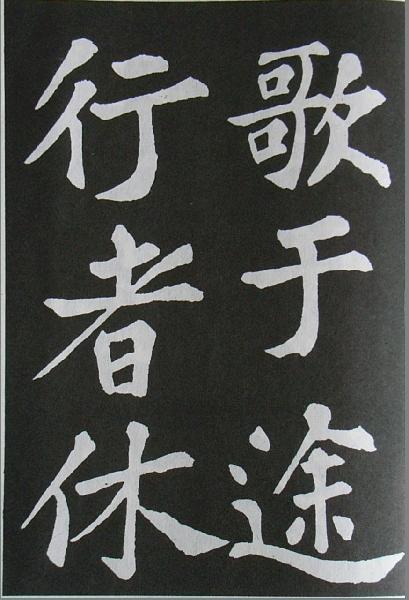 歌于途
行者休